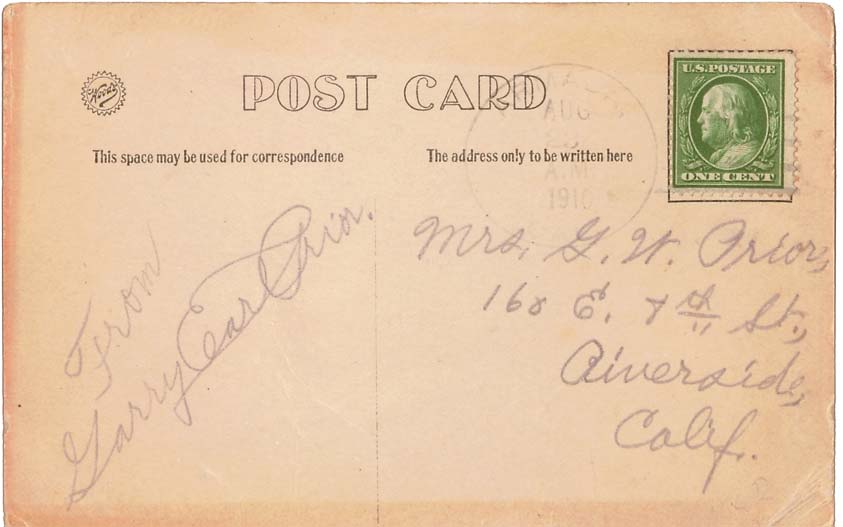 Woods
POST CARD
U.S. POSTAGE
ONE CENT
AUG
A.M
1910
This space may be used for correspondence
The address only to be written here
From
Garry Earl Prior.
Mrs. G. W. Prior,
168 E. 7th St.,
Riverside,
Calif.